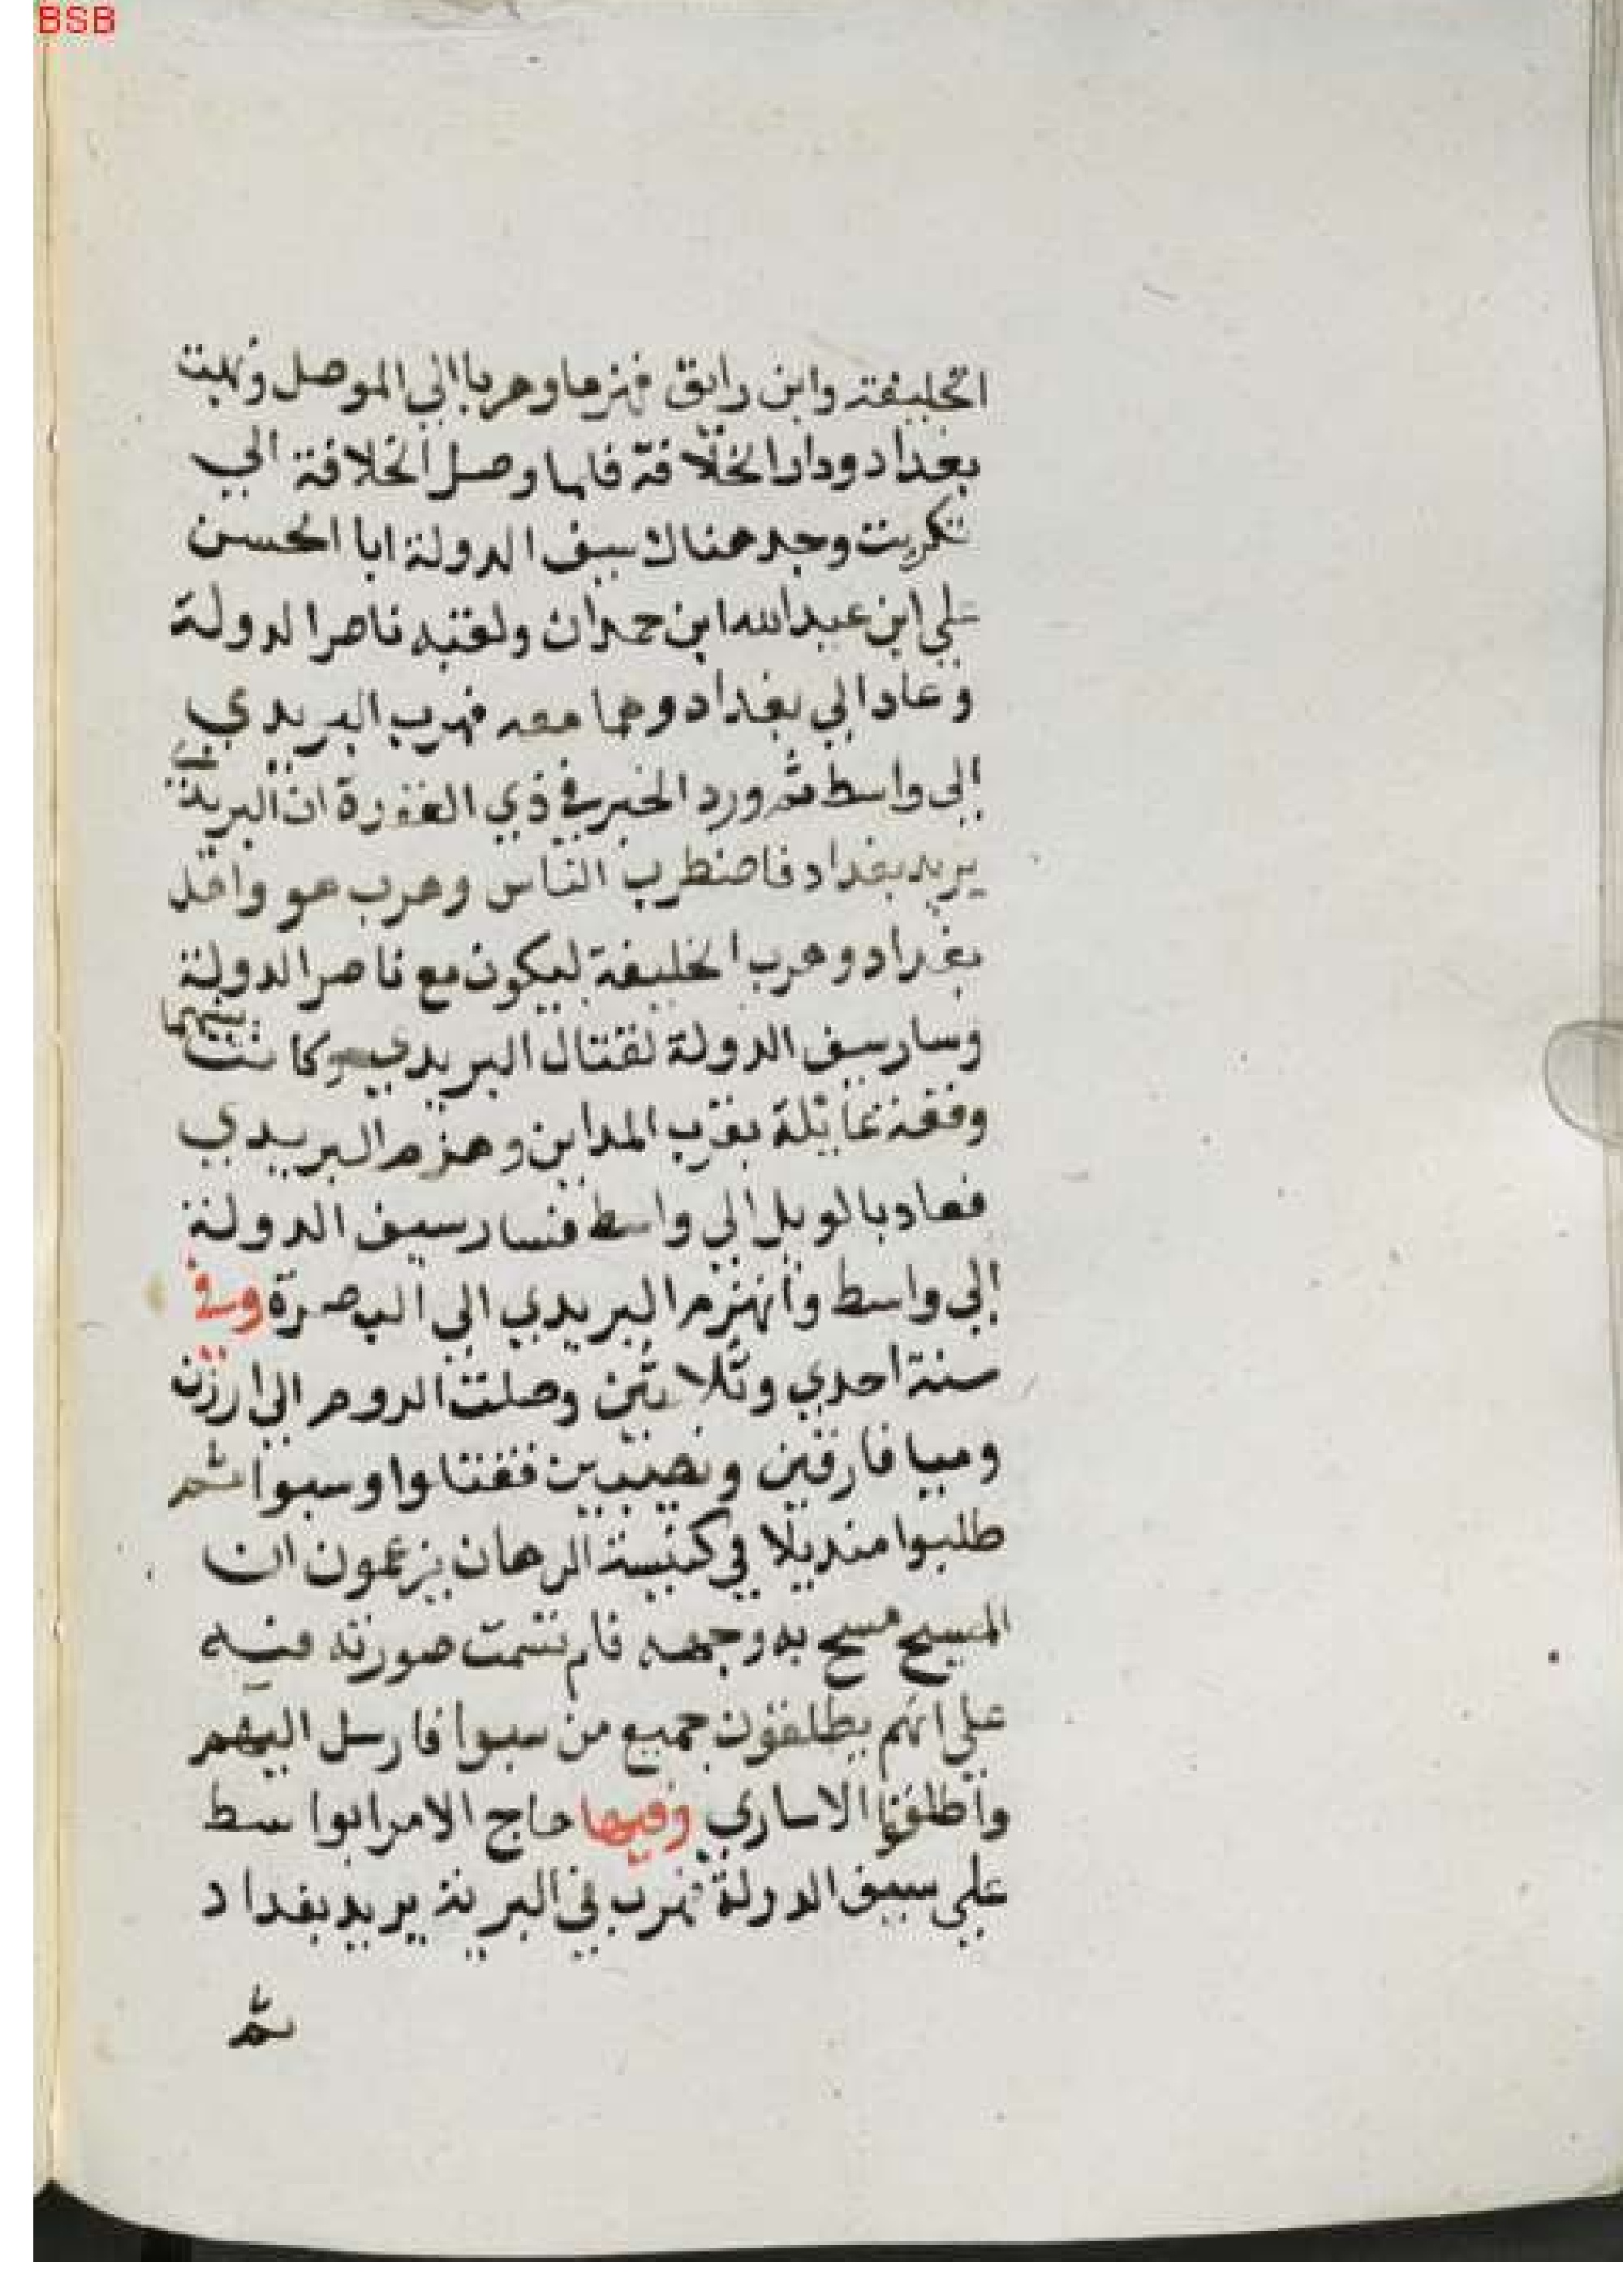 BSB
الخليفة وابن رايق فهزما وهربا الي الموصل ونهبت
بغداد ودار الخلافة فلما وصل الخلافة الي
تكريت وجد هناك سيف الدولة ابا الحسن
علي ابن عبد الله ابن حمدان ولقبه ناصر الدولة
وعاد الي بغداد وهما معه فهرب البريدي
الي واسط ثم ورد الخبر في ذي القعدة ان البريدي
يريد بغداد فاضطرب الناس وهرب هو واهل
بغداد وهرب الخليفة ليكون مع ناصر الدولة
وسار سيف الدولة لقتال البريدي وكانت بينهما
وقعة هايلة بقرب المداين وهزم البريدي
فعاد بالويل الي واسط فسار سيف الدولة
الي واسط وانهزم البريدي الي البصرة وفي
سنة احدي وثلاثين وصلت الروم الي ارزن
وميافارقين ونصيبين فقتلوا وسبوا ثم
طلبوا منديلا في كنيسة الرهان يزعمون ان
المسيح مسح به وجهه فارتسمت صورته فيه
علي انهم يطلقون جميع من سبوا فارسل اليهم
واطلقوا الاساري وفيها هاج الامرا بواسط
علي سيف الدولة فهرب في البرية يريد بغداد
ثم